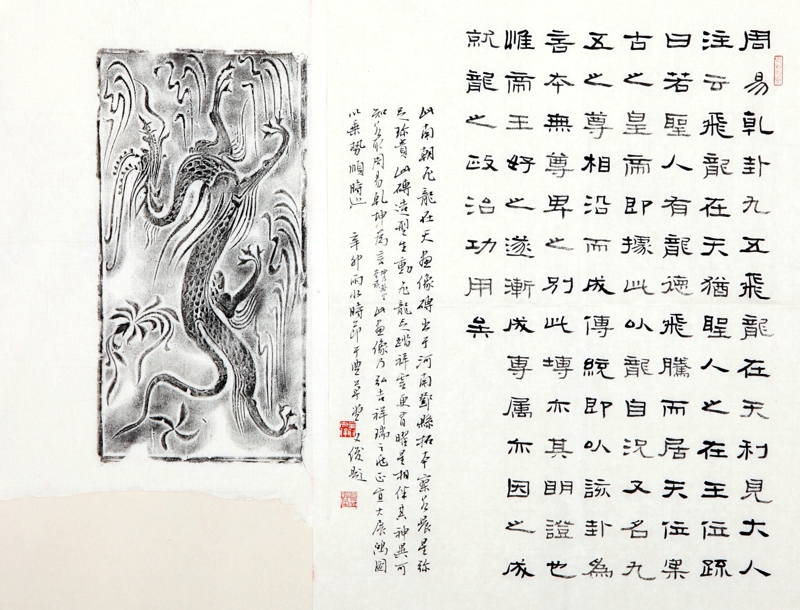 周易乾卦九五飛龍在天利見大人
注云飛龍在天猶聖人之在王位疏
曰若聖人有龍德飛騰而居天位果
古之皇帝即據此以龍自況又名九
五之尊相沿而成傳統即以該卦為
本無尊卑之別此塼亦其明證也
惟帝王好之遂漸成專属亦因之成
就龍之政治功用矣
此南朝飛龍在天畫像磚出于河南鄧縣拓本弥
足珍貴此磚造型生動飛龍足踏祥雲與星相伴其神異可
知周易乾坤為言此畫像乃弘吉祥瑞之兆正宜大展鴻圖
以乘勢順時也 辛卯雨水時節于草堂 文俊題